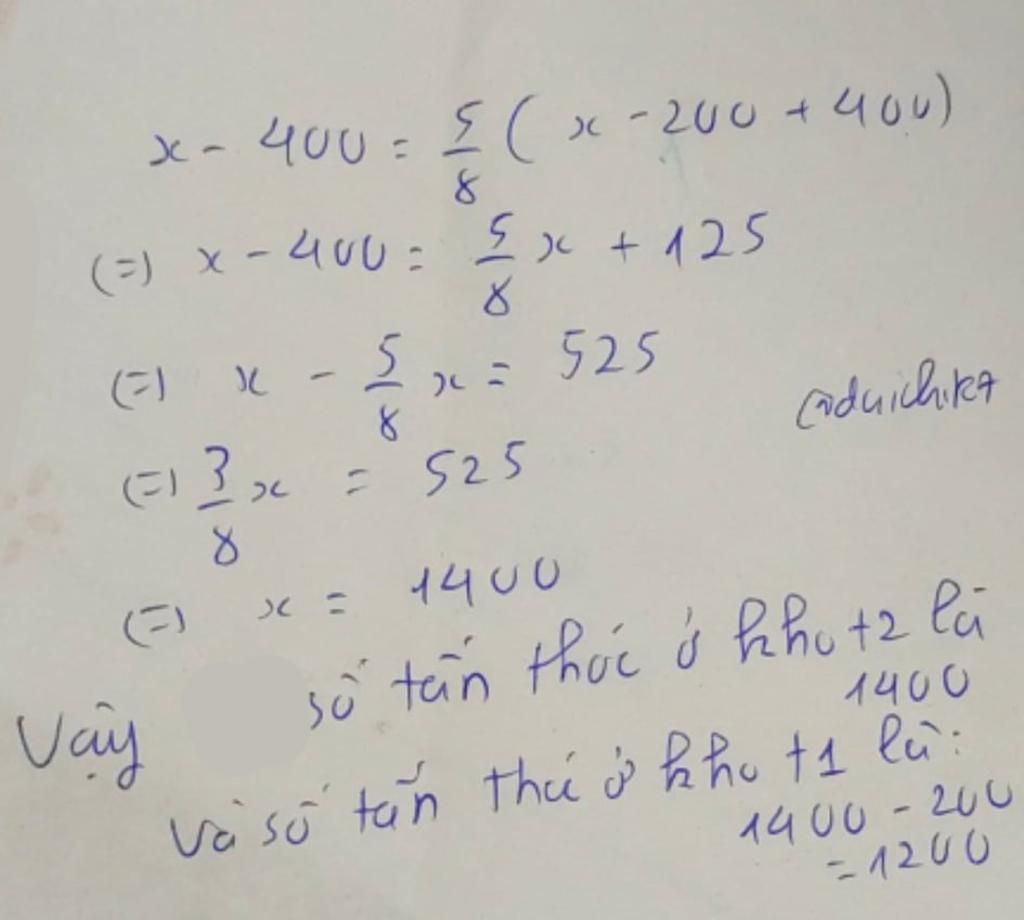 x - 400 = 5/8 ( x - 200 + 400)
(=) x - 400 = 5/8 x + 125
(=) x - 5/8 x = 525
(=) 3/8 x = 525
(=) x = 1400
Vậy số tấn thóc ở kho t2 là
1400
và số tấn thó ở kho t1 là:
1400 - 200
= 1200